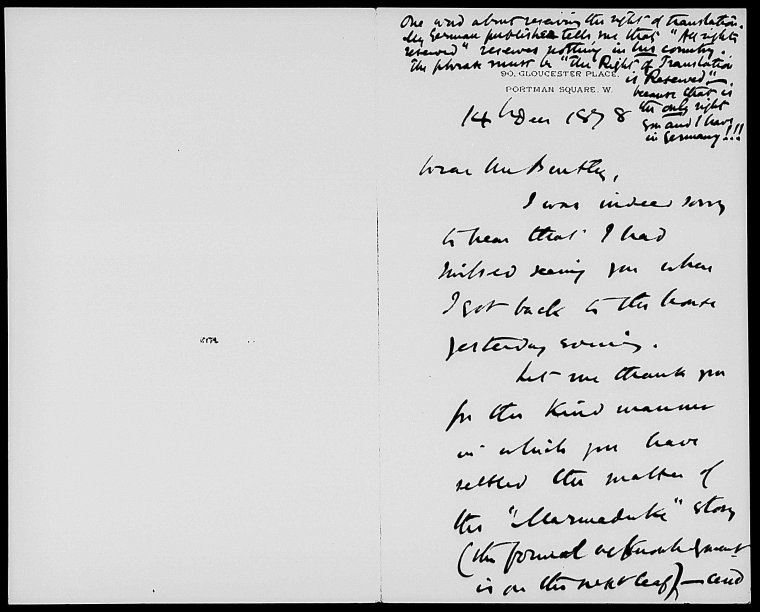 One word about reserving the right of translation.
My German publisher tells me that "All rights
reserved" reserves nothing in his country.
The phrase must be "The Right of Translation
is Reserved" —
because that is
the only right
you and I have
in Germany!!!
90, GLOUCESTER PLACE,
PORTMAN SQUARE. W.
14th Decr 1878
Dear Mr Bentley,
I was indeed sorry
to hear that I had
missed seeing you when
I got back to the house
yesterday evening.
Let me thank you
for the kind manner
in which you have
settled the matter of
the "Marmaduke" story
(the formal acknowledgment
is on the next leaf) — and